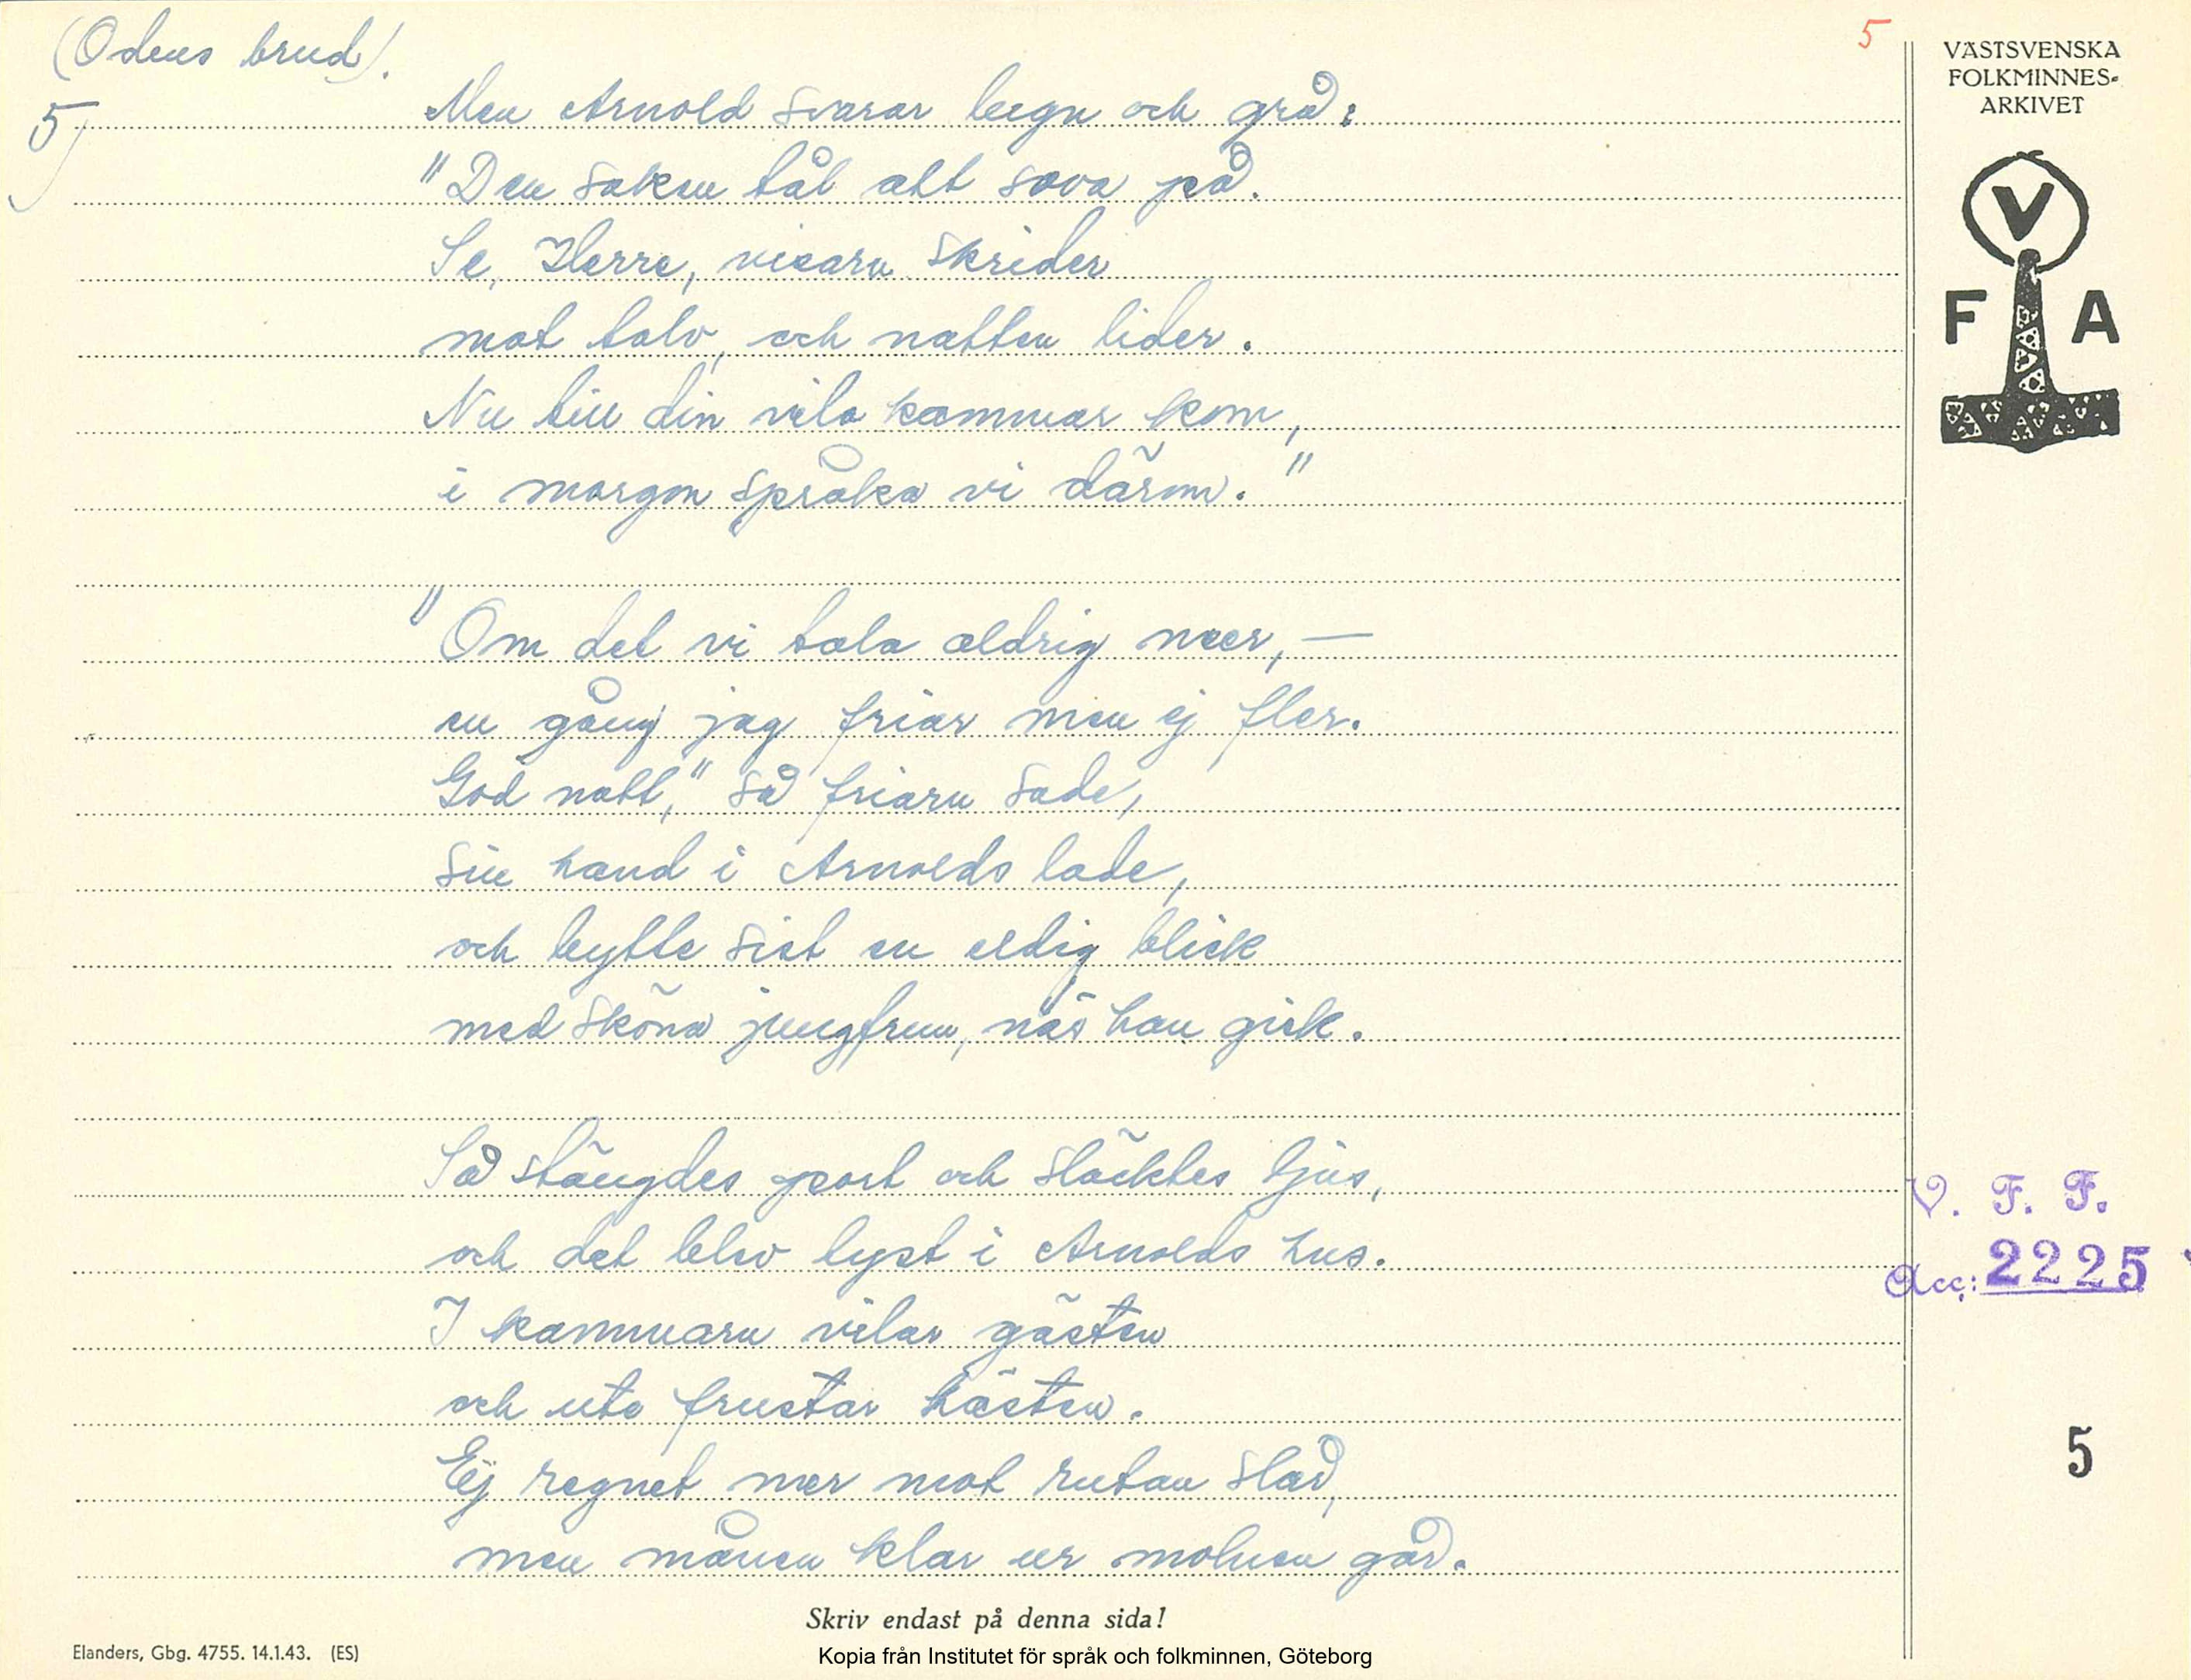 (Odens brud).
5
5)
Men Arnold svarar lugn och grå:
"Den saken tål att sova på.
Se, Herre, visarn skrider
mot tolv, och natten lider.
Nu till din vilo kammar kom,
i morgon språka vi därom."
"Om det vi tala aldrig meer, —
en gång jag friar men ej fler.
God natt," så friarn sade,
sin hand i Arnolds lade,
och bytte sist en eldig blick
med sköna jungfrun, när han gick.
Så stängdes port och släcktes ljus,
och det blev tyst i Arnolds hus.
I kammarn vilar gästen
och ute frustar hästen.
Ej regnet mer mot rutan slår,
men månen klar ur molnen går.
VÄSTSVENSKA
FOLKMINNES-
ARKIVET
V
F A
V. F. F.
Acc: 2225
5
Skriv endast på denna sida!
Elanders, Gbg. 4755. 14.1.43. (ES)
Kopia från Institutet för språk och folkminnen, Göteborg